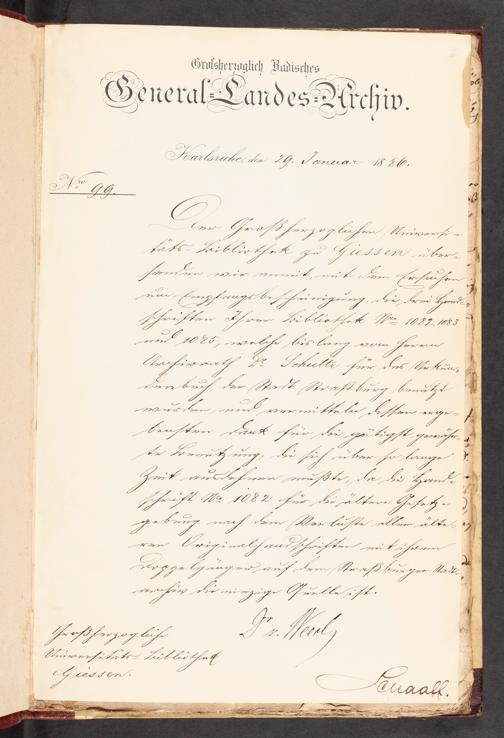 Großherzoglich Badisches
General-Landes-Archiv.
Karlsruhe, den 29. Januar 1886.
No 99.
Der Großherzoglichen Universi-
täts-Bibliothek zu Giessen über-
senden wir anmit, mit dem Ersuchen
um Empfangsbescheinigung, die drei Hand-
schriften Ihrer Bibliothek No 1082. 1083
und 1085, welche bislang vom Herrn
Archivrath Dr. Schulte für das Urkun-
denbuch der Stadt Straßburg benützt
wurden, und vermitteln dessen erge-
bensten Dank für die gütigst gewähr-
te Benützung, die sich über so lange
Zeit ausdehnen mußte, da die Hand-
schrift No 1082 für die ältere Gesetz-
gebung nach dem Verluste aller älte-
ren Originalhandschriften mit ihrem
Doppelgänger auf dem Straßburger Stadt-
archiv die einzige Quelle ist.
Dr. v. Weech
Großherzogliche
Universitäts-Bibliothek
Giessen.